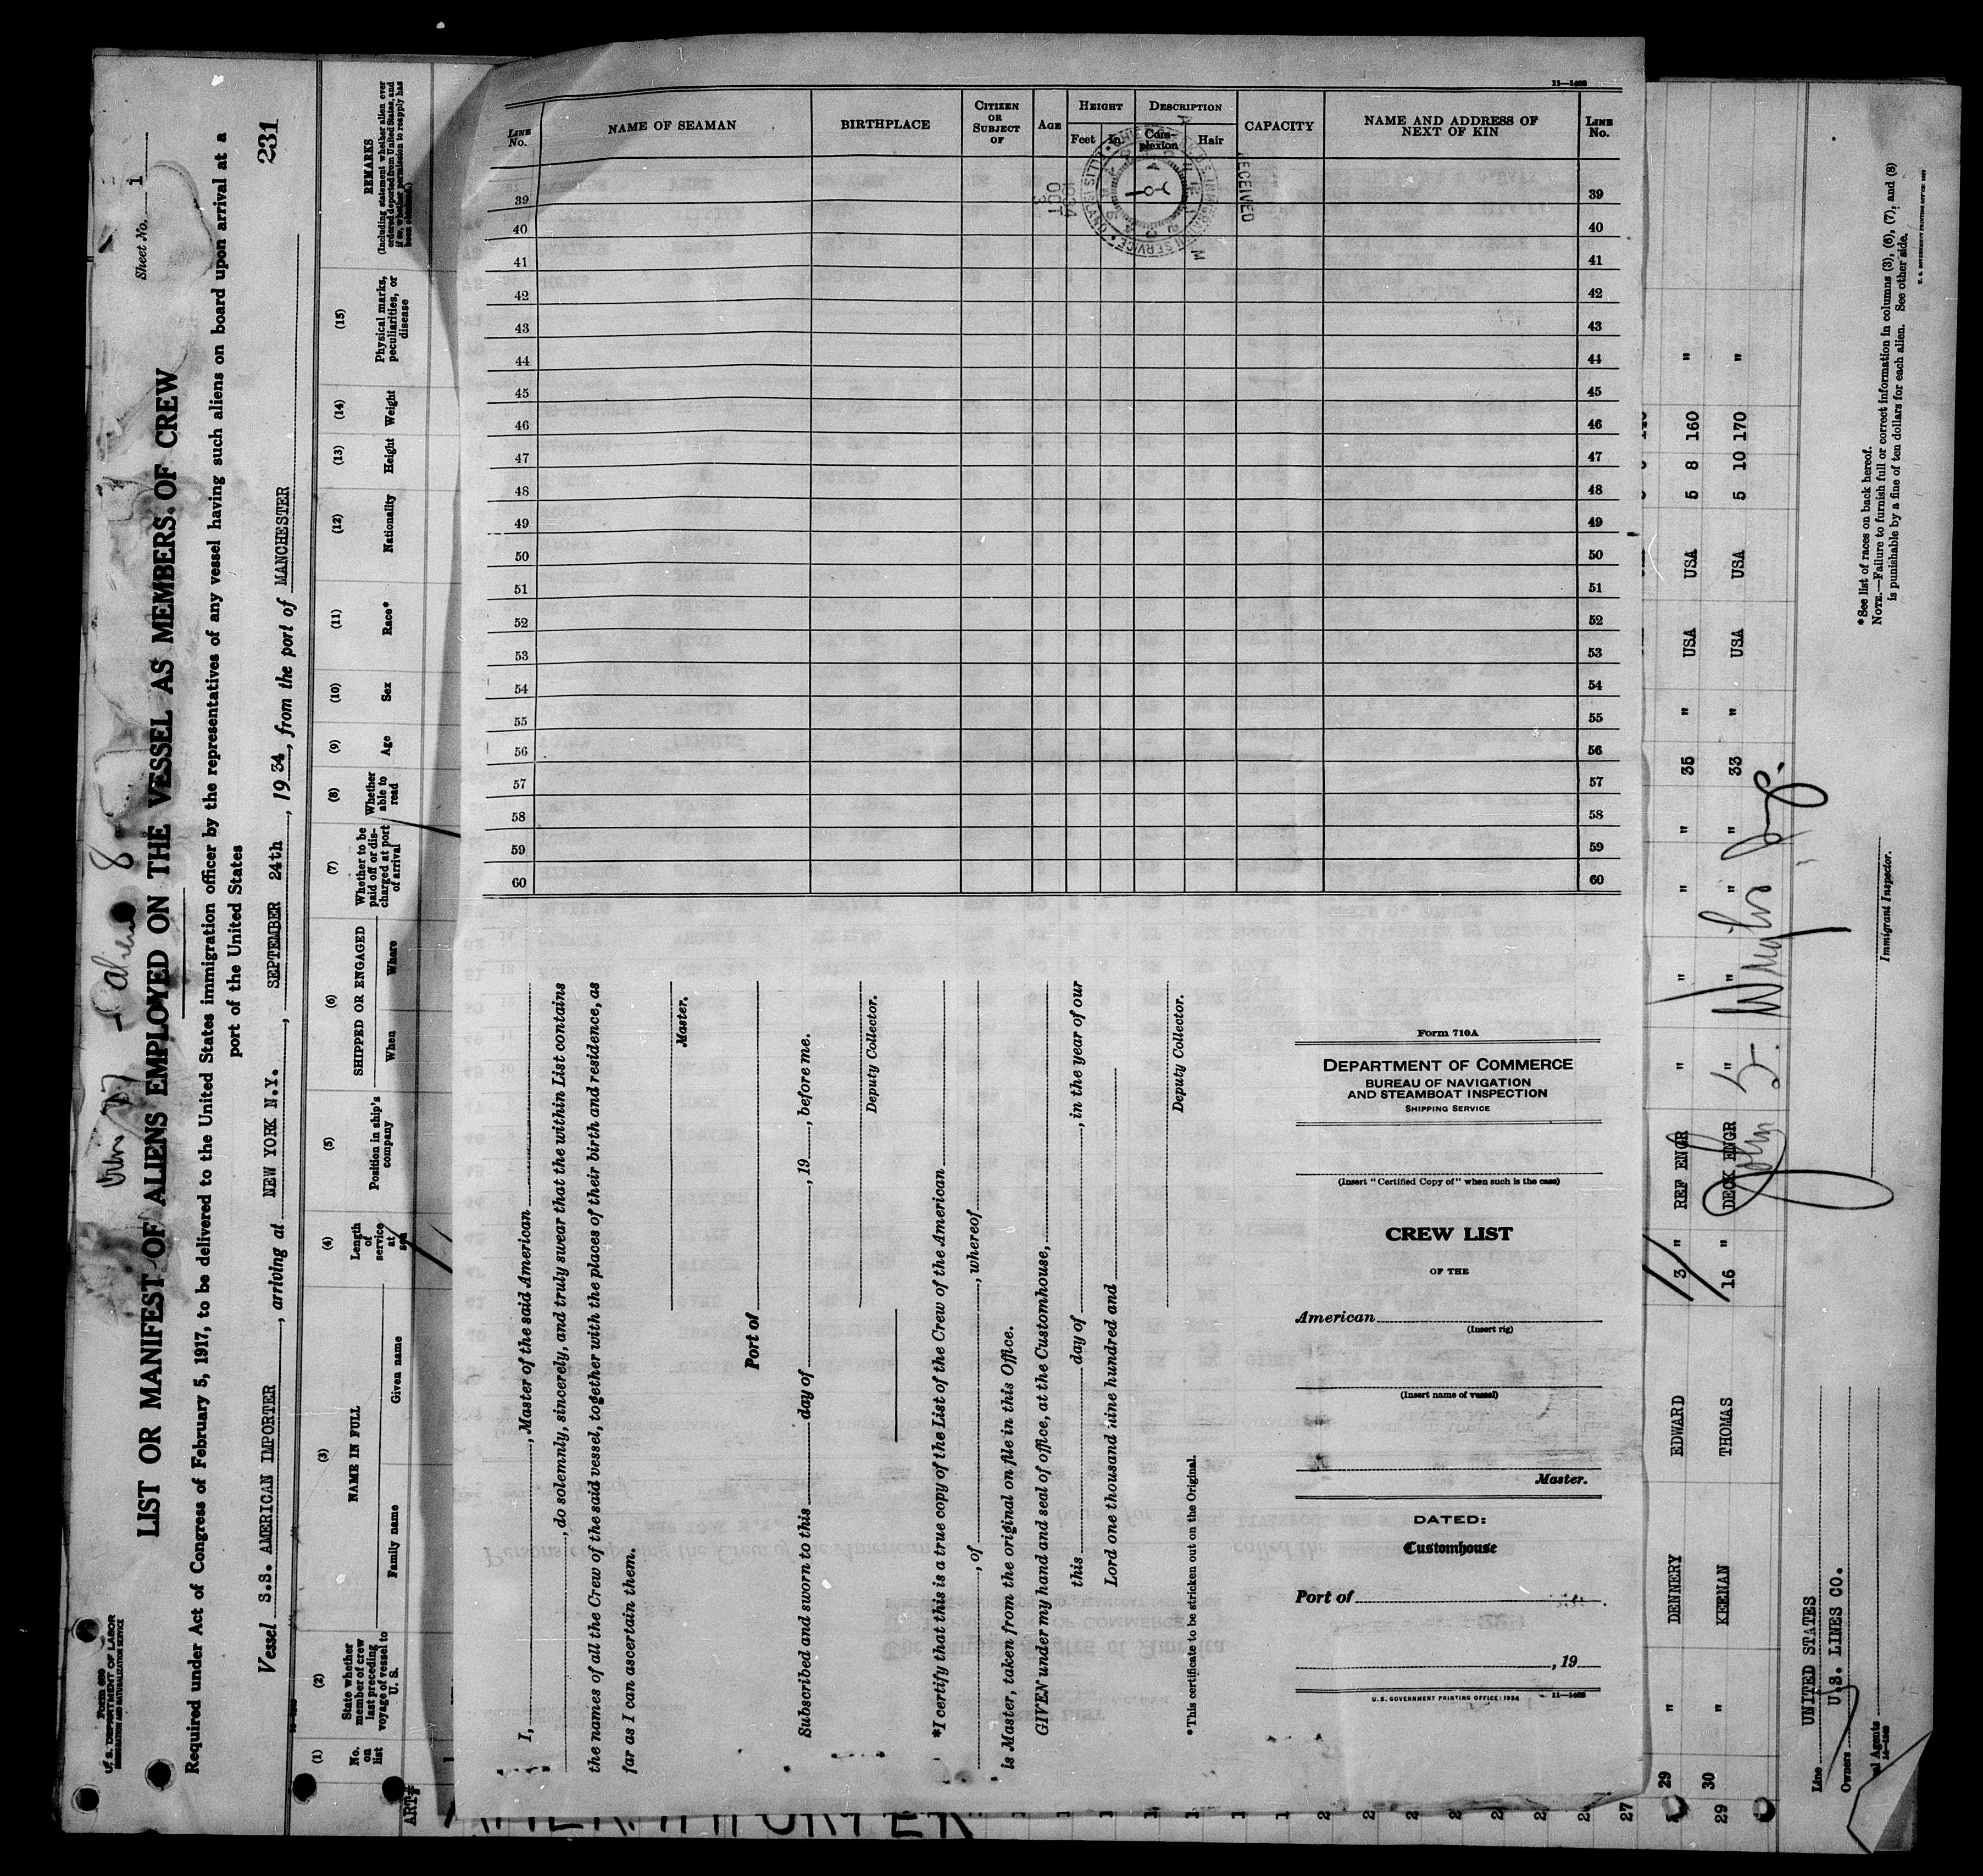 Form 680
U. S. DEPARTMENT OF LABOR
IMMIGRATION AND NATURALIZATION SERVICE
Sheet No. 1
LIST OR MANIFEST OF ALIENS EMPLOYED ON THE VESSEL AS MEMBERS OF CREW
Required under Act of Congress of February 5, 1917, to be delivered to the United States immigration officer by the representatives of any vessel having such aliens on board upon arrival at a
port of the United States
231
Vessel S.S. AMERICAN IMPORTER, arriving at NEW YORK N.Y., SEPTEMBER 24th, 1934, from the port of MANCHESTER
(1) (2) (3) (4) (5) (6) (7) (8) (9) (10) (11) (12) (13) (14) (15)
No. on list
State whether member of crew last preceding voyage of vessel to U. S.
NAME IN FULL
Family name
Given name
Length of service at sea
Position in ship's company
SHIPPED OR ENGAGED
When
Where
Whether to be paid off or discharged at port of arrival
Whether able to read
Age
Sex
Race*
Nationality
Height
Weight
Physical marks, peculiarities, or disease
REMARKS
(Including statement whether alien ever ordered deported from United States, and if so, whether permission to reapply has been obtained.)
ART#
11—1403
LINE No.
NAME OF SEAMAN
BIRTHPLACE
CITIZEN OR SUBJECT OF
AGE
HEIGHT
Feet
In.
DESCRIPTION
Complexion
Hair
CAPACITY
NAME AND ADDRESS OF NEXT OF KIN
LINE No.
RECEIVED
1934 OCT 3
39 39
40 40
41 41
42 42
43 43
44 44
45 45
46 46
47 47
48 48
49 49
50 50
51 51
52 52
53 53
54 54
55 55
56 56
57 57
58 58
59 59
60 60
I, , Master of the said American
, do solemnly, sincerely, and truly swear that the within List contains
the names of all the Crew of the said vessel, together with the places of their birth and residence, as
far as I can ascertain them.
Master.
Port of
Subscribed and sworn to this day of , 19 , before me.
Deputy Collector.
*I certify that this is a true copy of the List of the Crew of the American
, of , whereof
is Master, taken from the original on file in this Office.
GIVEN under my hand and seal of office, at the Customhouse,
this day of , in the year of our
Lord one thousand nine hundred and
Deputy Collector.
*This certificate to be stricken out on the Original.
Form 710A
DEPARTMENT OF COMMERCE
BUREAU OF NAVIGATION
AND STEAMBOAT INSPECTION
SHIPPING SERVICE
(Insert "Certified Copy of" when such is the case)
CREW LIST
OF THE
American
(Insert rig)
(Insert name of vessel)
Master.
DATED:
Customhouse
Port of
, 19
U. S. GOVERNMENT PRINTING OFFICE: 1934 11—1403
27
29 " DENNERY EDWARD 3 " REF ENGR " " " " 35 " USA USA 5 8 160 "
29 30 " KEENAN THOMAS 16 " DECK ENGR " " " " 33 " USA USA 5 10 170 "
Line UNITED STATES
Owners U.S. LINES CO.
Immigrant Inspector.
*See list of races on back hereof.
NOTE.—Failure to furnish full or correct information in columns (3), (6), (7), and (8)
is punishable by a fine of ten dollars for each alien. See other side.